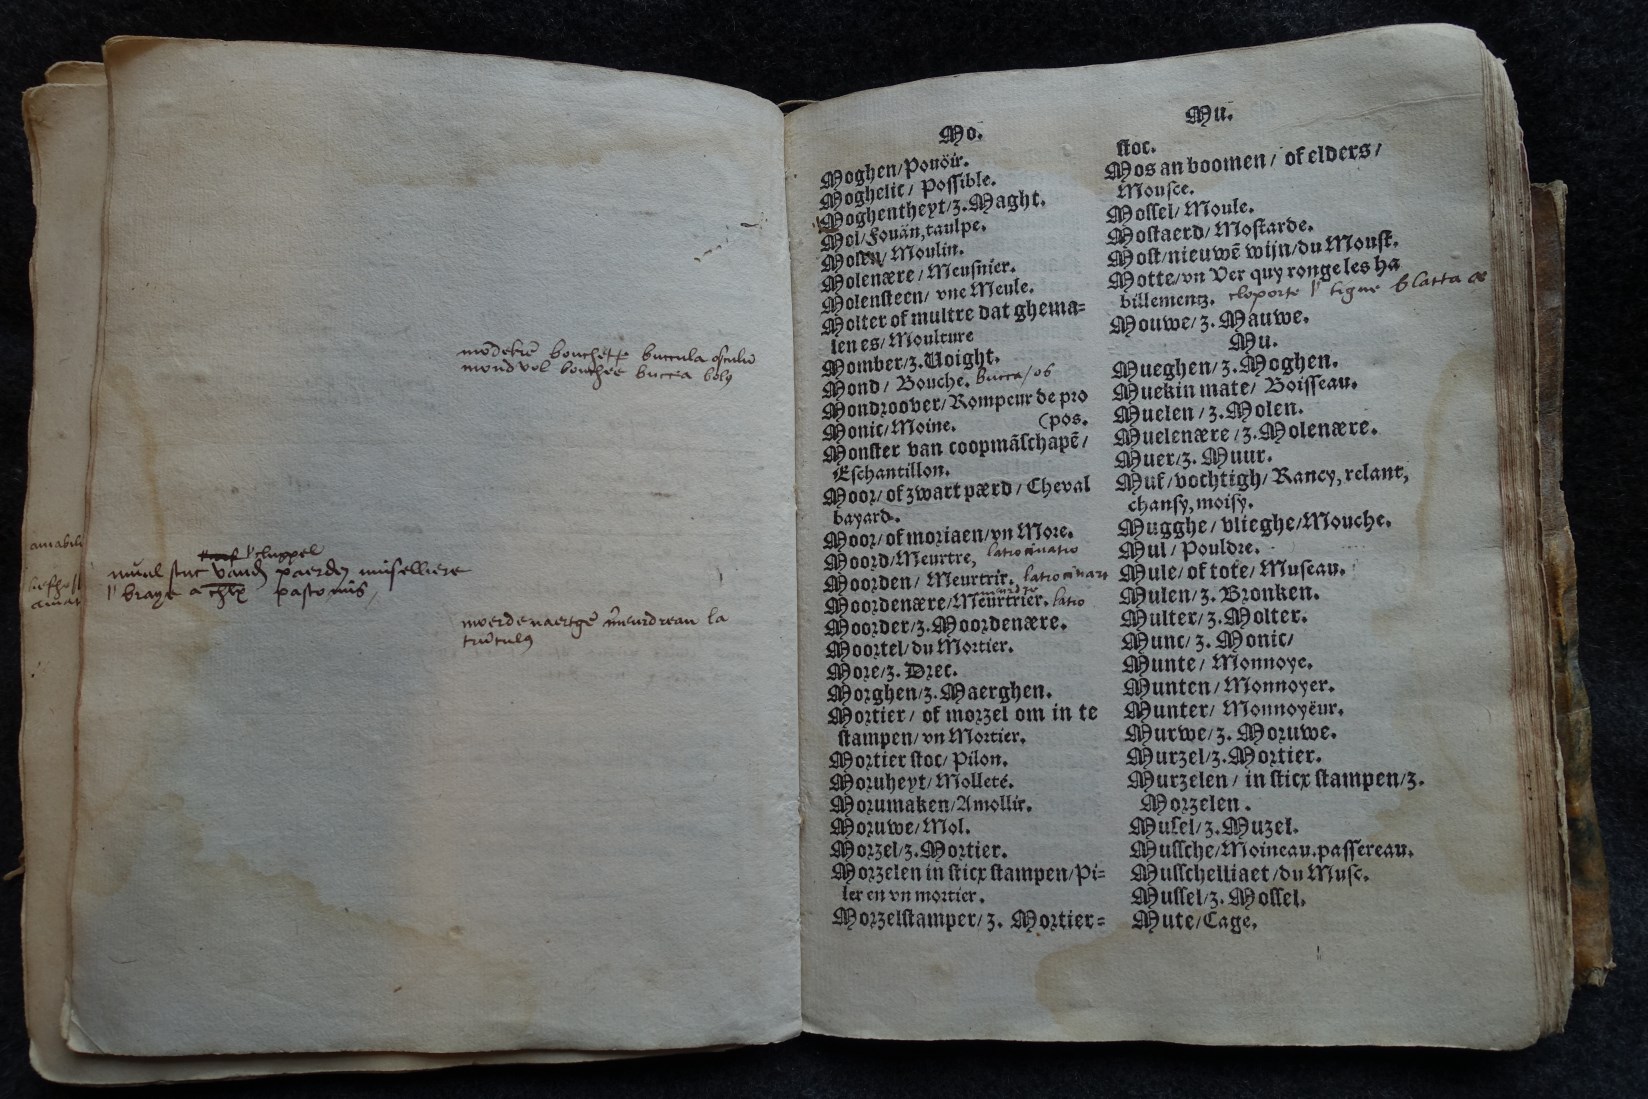 amabili
mōdekiē bouchette buccula osculū
mond vol bouchee bucca bol9
cluppel
muul stuc vandē paerdē muselliere
pasto mis
moerdenaertgē meurdreau la
trūcul9
Mo.
Moghen/Pouöir.
Moghelic/ Possible.
Moghentheyt/z.Maght.
Mol/Fouän,taulpe.
Molen/ Moulin.
Molenære/Meusnier.
Molensteen/ vne Meule.
Molter of multre dat ghema-
len es/Moulture
Momber/z.Voight.
Mond/ Bouche. bucca/os
Mondroover/Rompeur de pro
Monic/Moine. (pos.
Monster van coopmāschapē/
Eschantillon.
Moor/of zwart pærd/Cheval
bayard.
Moor/of moriaen/vn More.
Moord/Meurtre, latrocinatio
Moorden/ Meurtrir. latrocinari
Moordenære/Meurtrier. latro
Moorder/z.Moordenære.
Moortel/du Mortier.
More/z. Drec.
Morghen/z.Maerghen.
Mortier/ of morzel om in te
stampen/vn Mortier.
Mortier stoc/Pilon.
Moruheyt/Molleté.
Morumaken/Amollir.
Moruwe/Mol.
Morzel/z.Mortier.
Morzelen in sticx stampen/Pi-
ler en vn mortier.
Morzelstamper/z. Mortier-
Mu.
stoc.
Mos an boomen/ of elders/
Mousce.
Mossel/Moule.
Mostaerd/Mostarde.
Most/nieuwē wijn/du Moust.
Motte/vn Ver quy ronge les ha
billementz. cloporte tigne blatta æ
Mouwe/z.Mauwe.
Mu.
Mueghen/z.Moghen.
Muekin mate/ Boisseau.
Muelen/z.Molen.
Muelenære/z.Molenære.
Muer/z. Muur.
Muf/vochtigh/Rancy,relant,
chansy,moisy.
Mugghe/vlieghe/Mouche.
Mul/Pouldre.
Mule/of tote/Museau.
Mulen/z.Pronken.
Multer/z.Molter.
Munc/z.Monic/
Munte/Monnoye.
Munten/Monnoyer.
Munter/ Monnoyëur.
Murwe/z.Moruwe.
Murzel/z.Mortier.
Murzelen/ in sticx stampen/z.
Morzelen.
Musel/z.Muzel.
Mussche/Moineau,passereau.
Musschelliaet/du Musc.
Mussel/z.Mossel.
Mute/Cage.